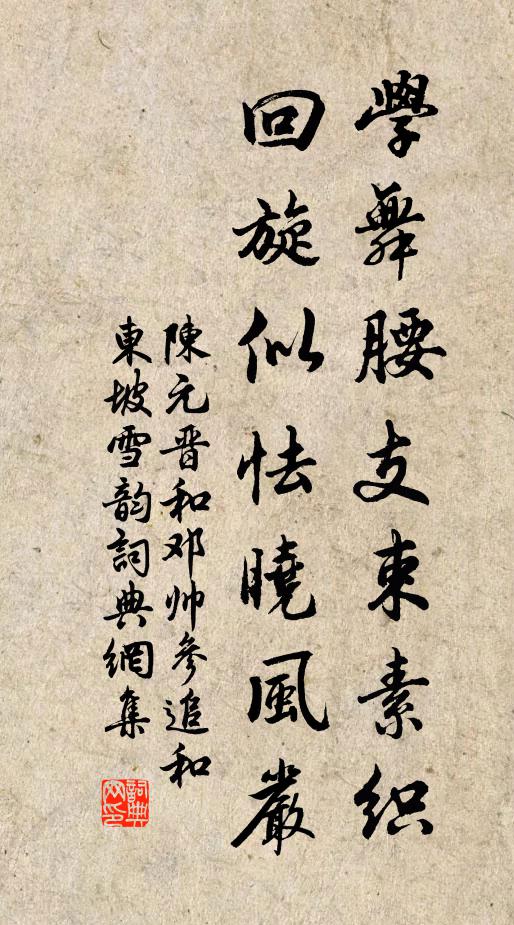 學舞腰支束素织
回旋似怯曉風嚴
陳元晋和邓帅參追和
東坡雪韵詞典網集
詞典网印